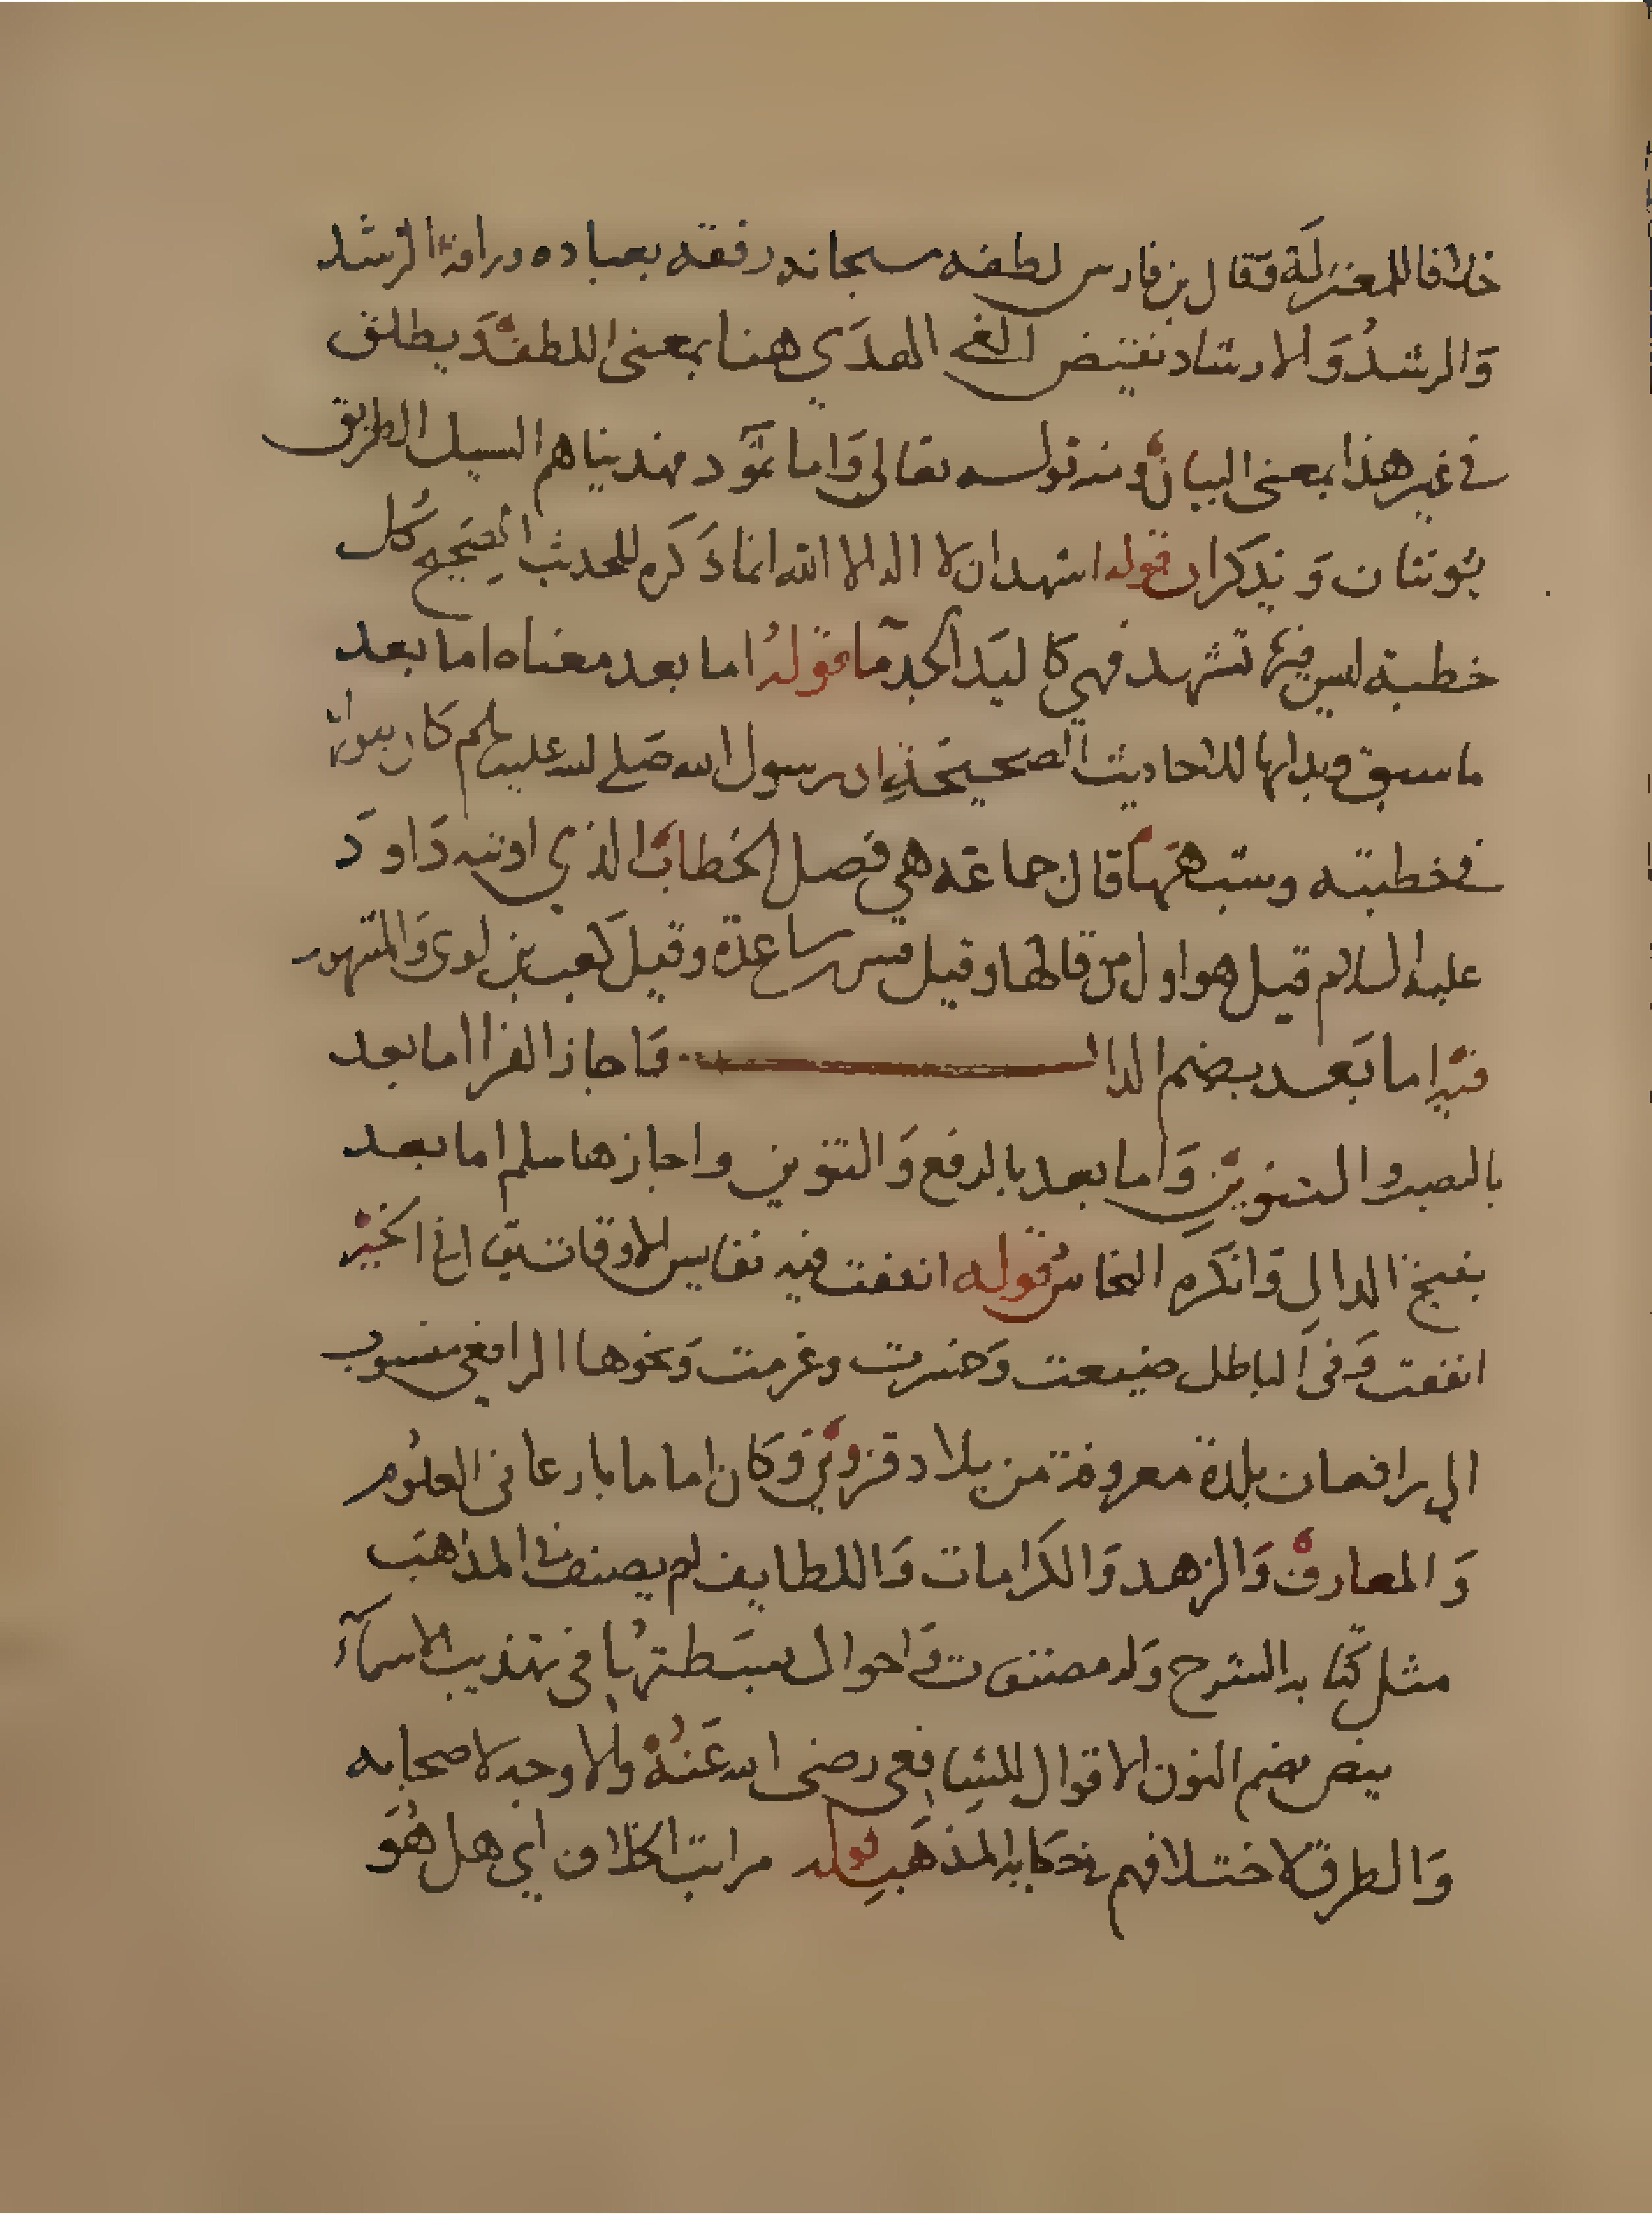 خلافا للمعتزلة فقال بن فارس لطفه سبحانه رفقه بعباده ورافته الرشد
والرشد والارشاد نقيض الغي الهدي هنا بمعنى اللطف ويطلق
في غير هذا بمعنى البيان ومنه قوله تعالى واما ثمود فهديناهم السبيل الطريق
يونثان ويذكران قوله اشهد ان لا اله الا الله انما ذكره للحديث الصحيح كل
خطبة ليس فيها تشهد فهي كاليد الجذما قوله اما بعد معناه اما بعد
ما سبق وبدا بها للاحاديث الصحيحة ان رسول الله صلى الله عليه وسلم كان يقولها
في خطبته وشبهها قال جماعة هي فصل الخطاب الذي اوتيه داود
عليه السلام قيل هو اول من قالها وقيل قس بن ساعدة وقيل كعب بن لوى والمشهور
فيه اما بعد بضم الدال فاجاز الفرا اما بعد
بالنصب والتنوين واما بعد بالرفع والتنوين واجاز هشام اما بعد
بفتح الدال وانكره النحاس قوله انفقت فيه نفايس الاوقات يق في الخير
انفقت وفي الباطل ضيعت وخسرت وغرمت ونحوها الرافعي منسوب
الى رافعان بلدة معروفة من بلاد قزوين وكان اماما بارعا في العلوم
والمعارف والزهد والكرامات واللطايف لم يصنف في المذهب
مثل كتابه الشرح وله مصنفات واحوال بسطتها في تهذيب الاسمآء
ينص بضم النون الاقوال للشافعي رضى الله عنه والاوجه لاصحابه
والطرق لاختلافهم في حكاية المذهب قوله مراتب الخلاف اي هل هو